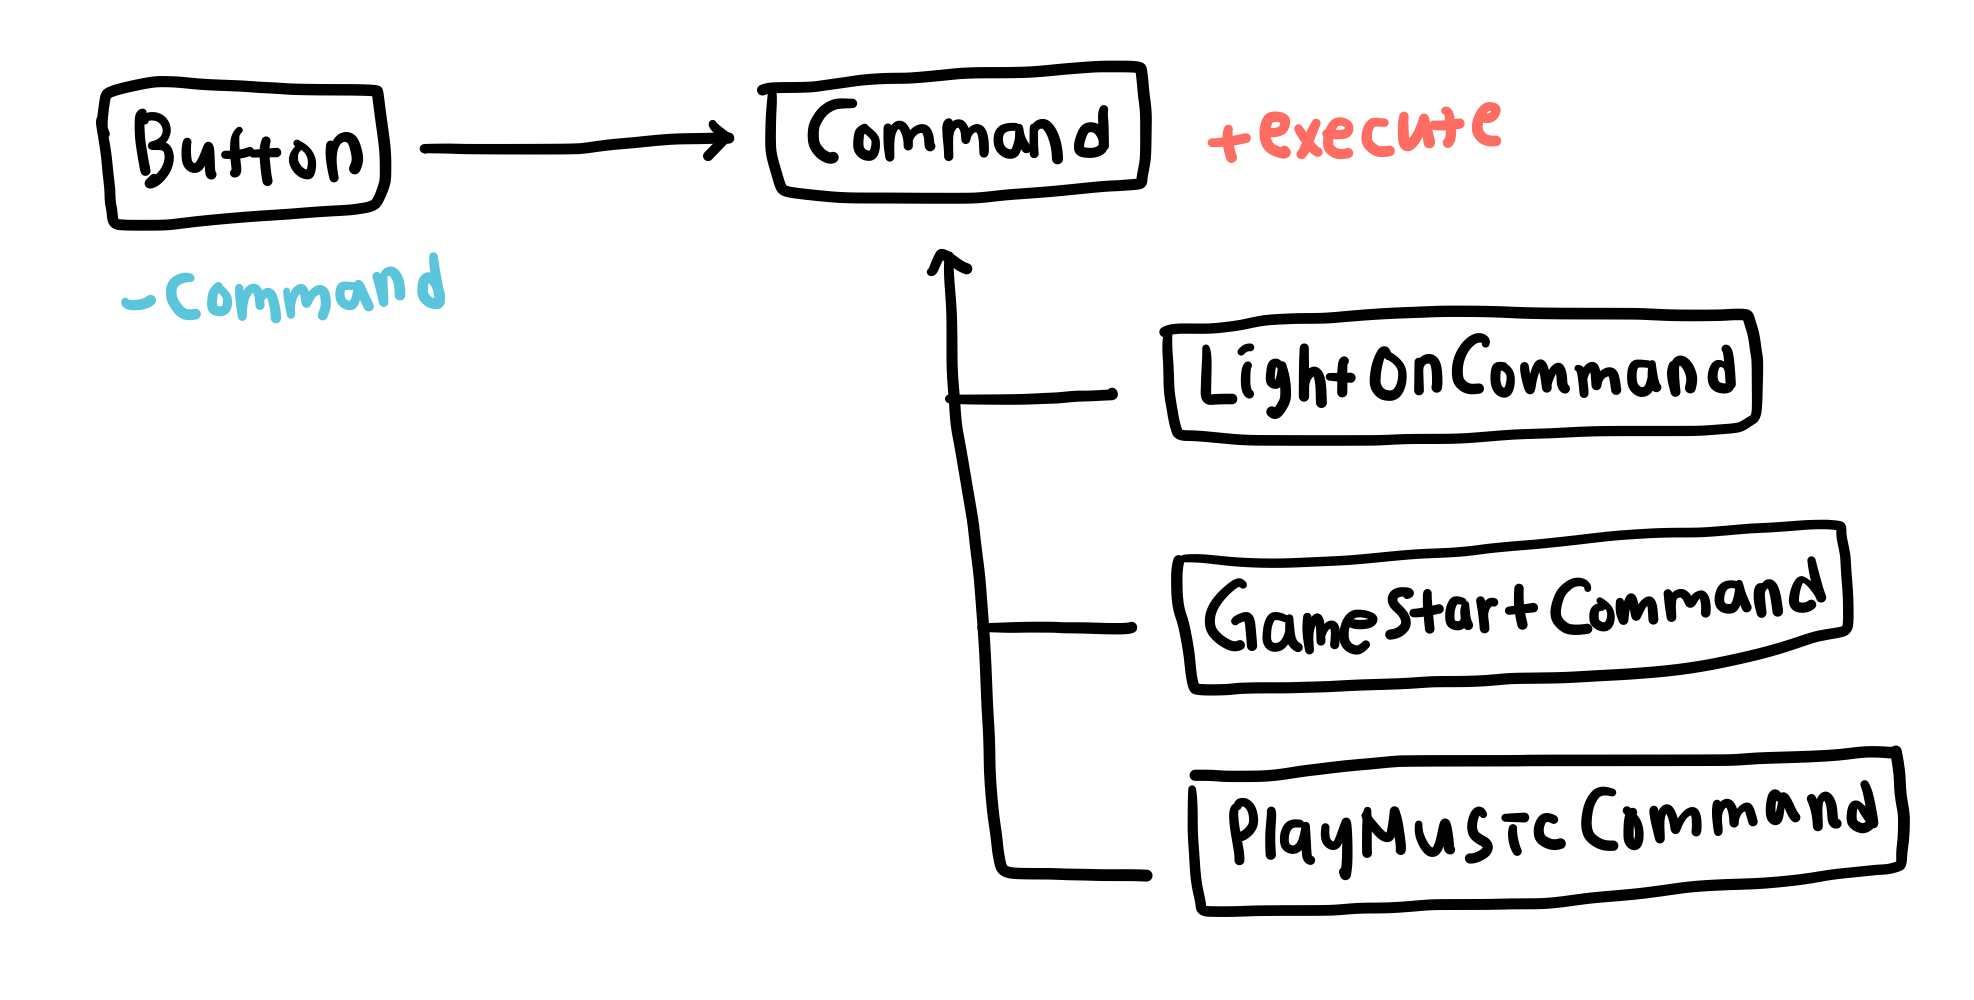 Button
Command
+execute
-Command
LightOnCommand
GameStartCommand
PlayMusicCommand